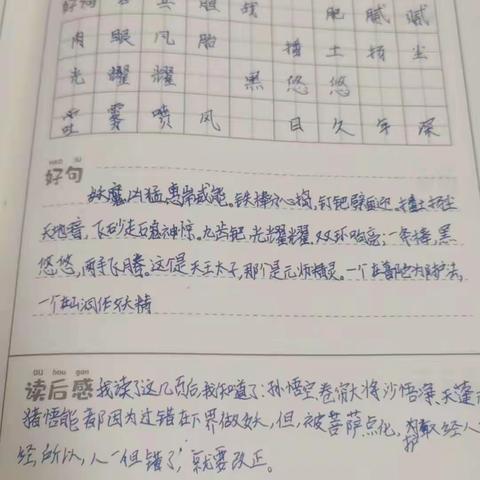 好词
肥 腻 腻
肉 眼 凡 胎 播 土 扬 尘
光 耀 耀 黑 悠 悠
吐 雾 喷 风 日 久 年 深
hao ju
好句
妖魔凶猛,惠岸威能。铁棒分心捣,钉钯劈面迎。播土扬尘
天地暗,飞砂走石鬼神惊。九齿钯,光耀耀,双环响亮;一条棒,黑
悠悠,两手飞腾。这个是天王太子,那个是元帅精灵。一个在普陀为护法,
一个在山洞作妖精
du hou gan
读后感
我读了这几页后,我知道了:孙悟空、卷帘大将沙悟净、天蓬
猪悟能都因为过错在下界做妖,但,被菩萨点化,为取经人
护
经,所以,人一但错了,就要改正。